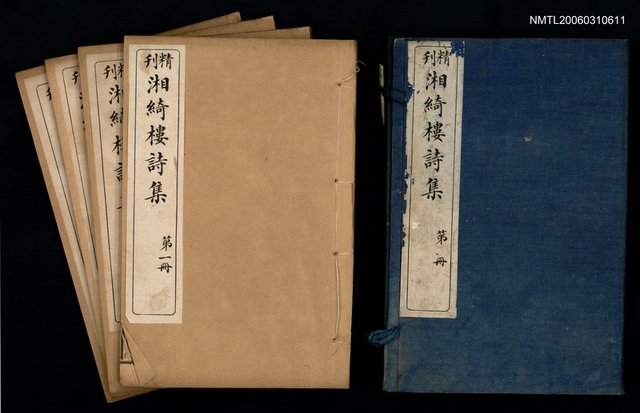 NMTL20060310611
精刊
湘綺樓詩集
第一冊
精刊
湘綺樓詩集
第 冊
刊
湘綺樓詩